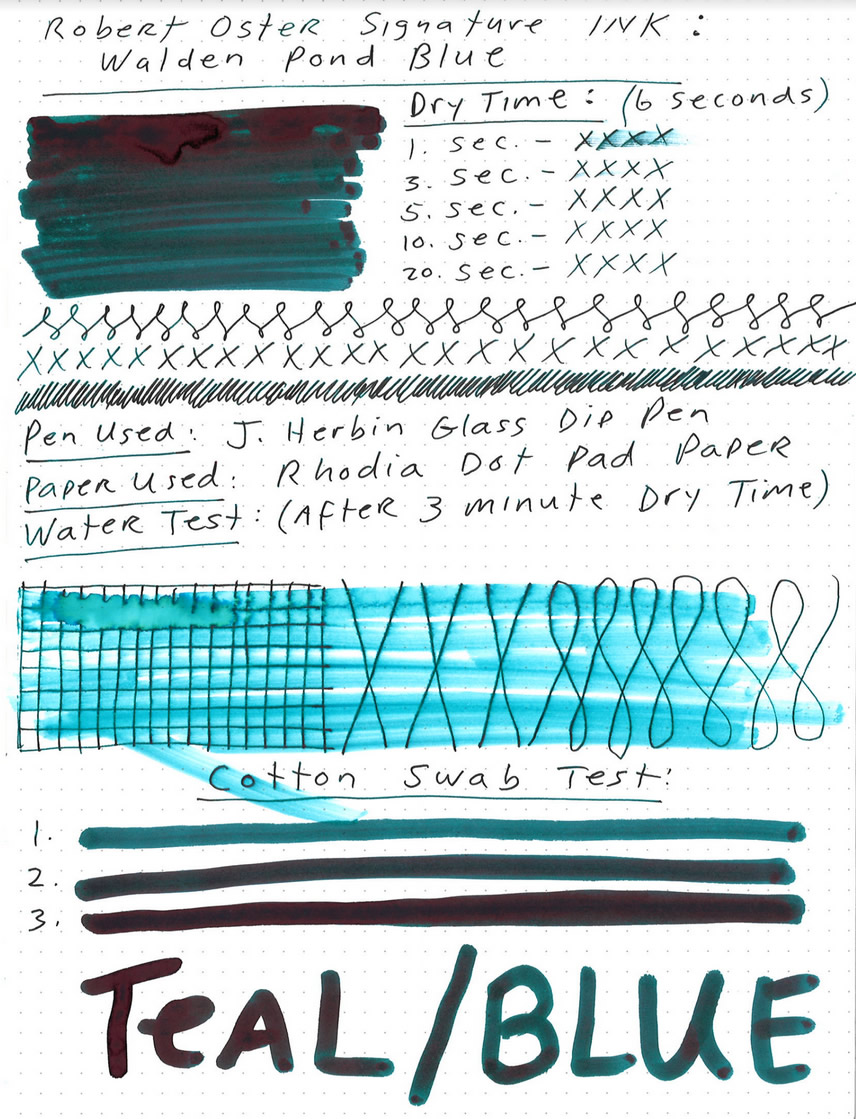 Robert Oster Signature INK:
Walden Pond Blue
Dry Time: (6 seconds)
1. sec. - XXXX
3. sec. - XXXX
5. sec. - XXXX
10. sec. - XXXX
20. sec. - XXXX
XXXXXXXXXXXXXXXXXXXXXXXXXXX
Pen Used: J. Herbin Glass Dip Pen
Paper Used: Rhodia Dot Pad Paper
Water Test: (After 3 minute Dry Time)
Cotton Swab Test:
1.
2.
3.
TeAL/BLUE